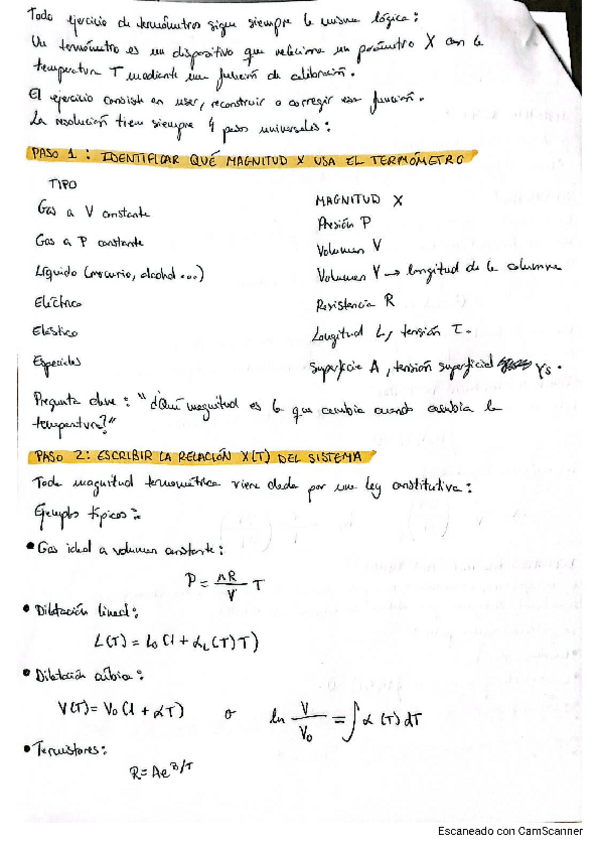 Todo ejercicio de termómetros sigue siempre la misma lógica:
Un termómetro es un dispositivo que relaciona un parámetro X con la
temperatura T mediante una función de calibración.
El ejercicio consiste en usar, reconstruir o corregir esa función.
La resolución tiene siempre 4 pasos universales:
PASO 1: IDENTIFICAR QUÉ MAGNITUD X USA EL TERMÓMETRO
TIPO MAGNITUD X
Gas a V constante Presión P
Gas a P constante Volumen V
Líquido (mercurio, alcohol...) Volumen V → longitud de la columna
Eléctrico Resistencia R
Elástico Longitud L, tensión τ.
Especiales Superficie A, tensión superficial γs.
Pregunta clave: "¿Qué magnitud es la que cambia cuando cambia la
temperatura?"
PASO 2: ESCRIBIR LA RELACIÓN X(T) DEL SISTEMA
Toda magnitud termométrica viene dada por una ley constitutiva:
Ejemplos típicos:
• Gas ideal a volumen constante:
P = nR/V T
• Dilatación lineal:
L(T) = L0 (1 + αL(T)T)
• Dilatación cúbica:
V(T) = V0 (1 + αT) o ln V/V0 = ∫α(T)dT
• Termistores:
R = Ae^B/T
Escaneado con CamScanner